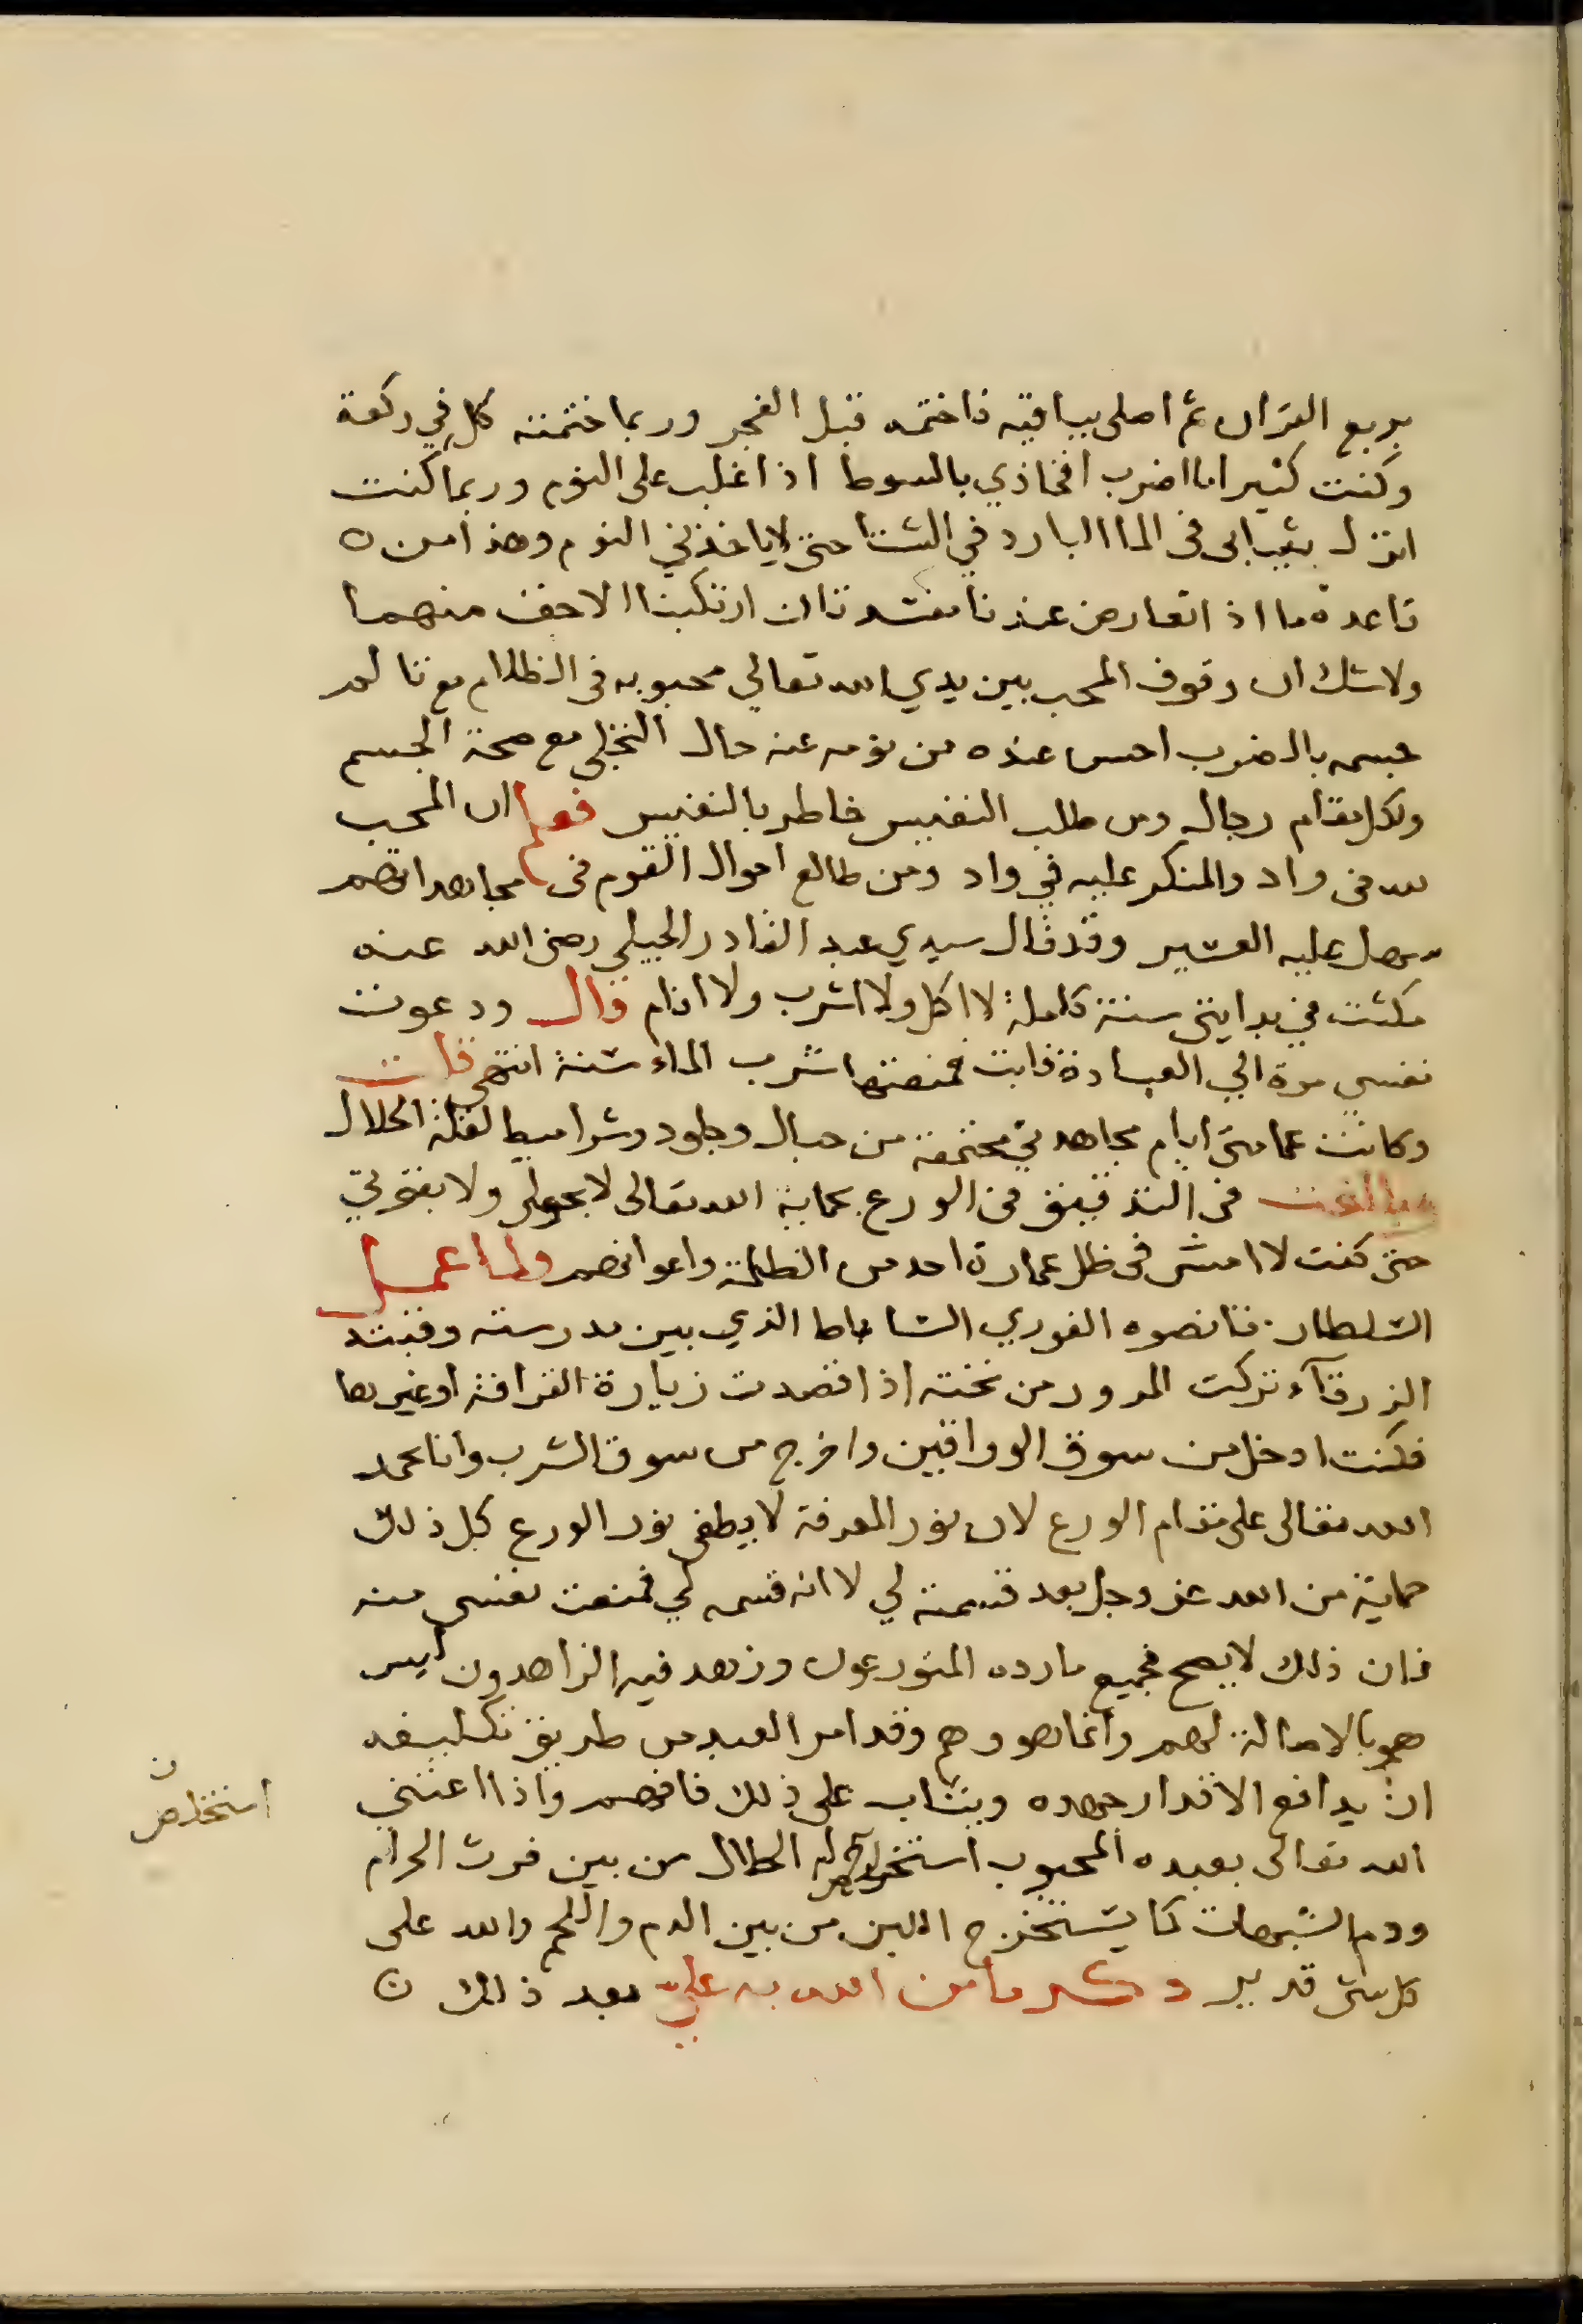 بربع القران ثم اصلى بباقيه فاختمه قبل الفجر وربما ختمته كل في ركعة
وكنت كثيرا ما اضرب افخاذي بالسوط اذا غلب على النوم وربما كنت
انزل بثيابى فى الما البارد في الشتا حتى لا ياخذني النوم وهذا من
قاعدة ما اذا تعارض عندنا مفسدتان ارتكبنا الاخف منهما
ولا شك ان وقوف المحب بين يدي الله تعالي محبوبه فى الظلام مع تالم
جسمه بالضرب احسن عنده من نومه عنه حال التجلي مع صحة الجسم
ولكل مقام رجال ومن طلب النفيس خاطر بالنفيس فعلم ان المحب
لله فى واد والمنكر عليه في واد ومن طالع احوال القوم فى مجاهداتهم
سهل عليه العسير وقد قال سيدي عبد القادر الجيلي رضى الله عنه
مكثت في بدايتى سنة كاملة لا اكل ولا اشرب ولا انام قال ودعوت
نفسي مرة الي العبادة فابت فمنعتها شرب الماء سنة انتهى قلت
وكانت عمامتى ايام مجاهدتي مجتمعة من حبال وجلود وشراميط لقلة الحلال
وبالغت فى التدقيق فى الورع بحماية الله تعالى لا بحولى ولا بقوتي
حتى كنت لا امشى فى ظل عمارة احد من الظلمة واعوانهم ولما عمل
السلطان قانصوه الغوري الساباط الذي بين مدرسته وقبته
الزرقآء تركت المرور من تحته اذا قصدت زيارة القرافة او غيرها
فكنت ادخل من سوق الوراقين واخرج من سوق الشرب وانا بحمد
الله تعالى على مقام الورع لان نور المعرفة لا يطفى نور الورع كل ذلك
حماية من الله عز وجل بعد قسمته لي لا انه قسمه لي فمنعت نفسى منه
فان ذلك لا يصح فجميع ما رده المتورعون وزهد فيه الزاهدون ليس
هو بالاصالة لهم وانما هو وهم وقد امر العبد من طريق تكليفه
ان يدافع الاقدار جهده ويثاب على ذلك فافهم واذا اعتنى
الله تعالى بعبده المحبوب استخرج له الحلال من بين فرث الحرام
ودم الشبهات كما يستخرج اللبن من بين الدم واللحم والله على
كل شى قدير ذكر ما من الله به علي بعد ذلك ن
ن
استخلص